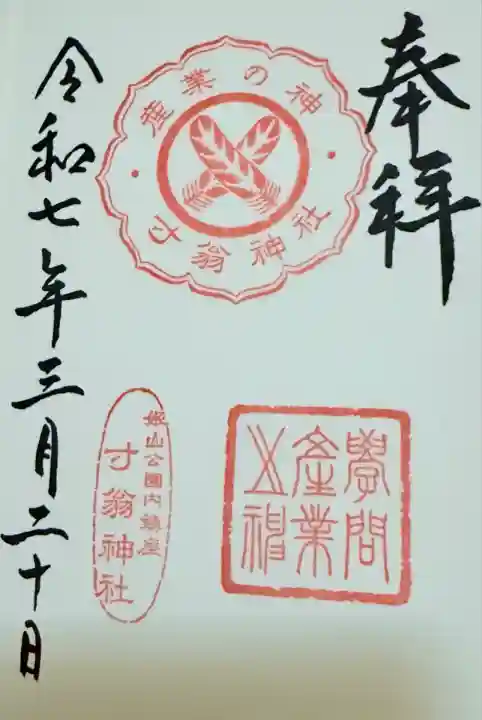 奉拝
産業の神
寸翁神社
學問
産業
之神
姫山公園内鎮座
寸翁神社
令和七年三月二十日